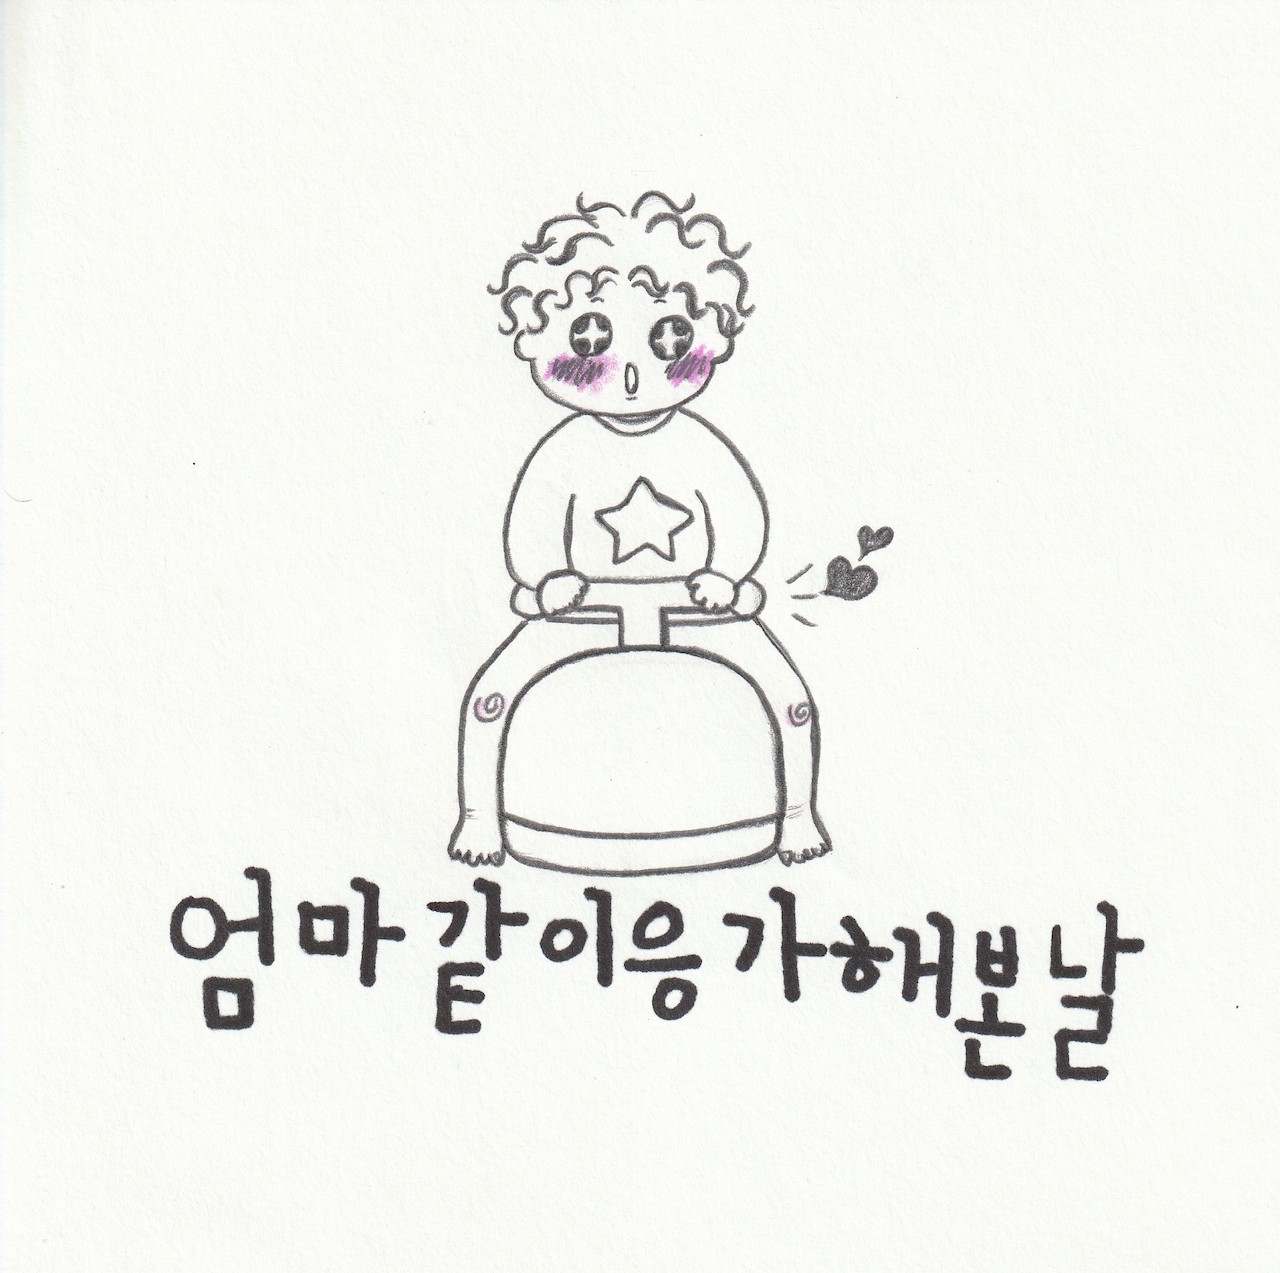 엄마 같이 응가 해본 날